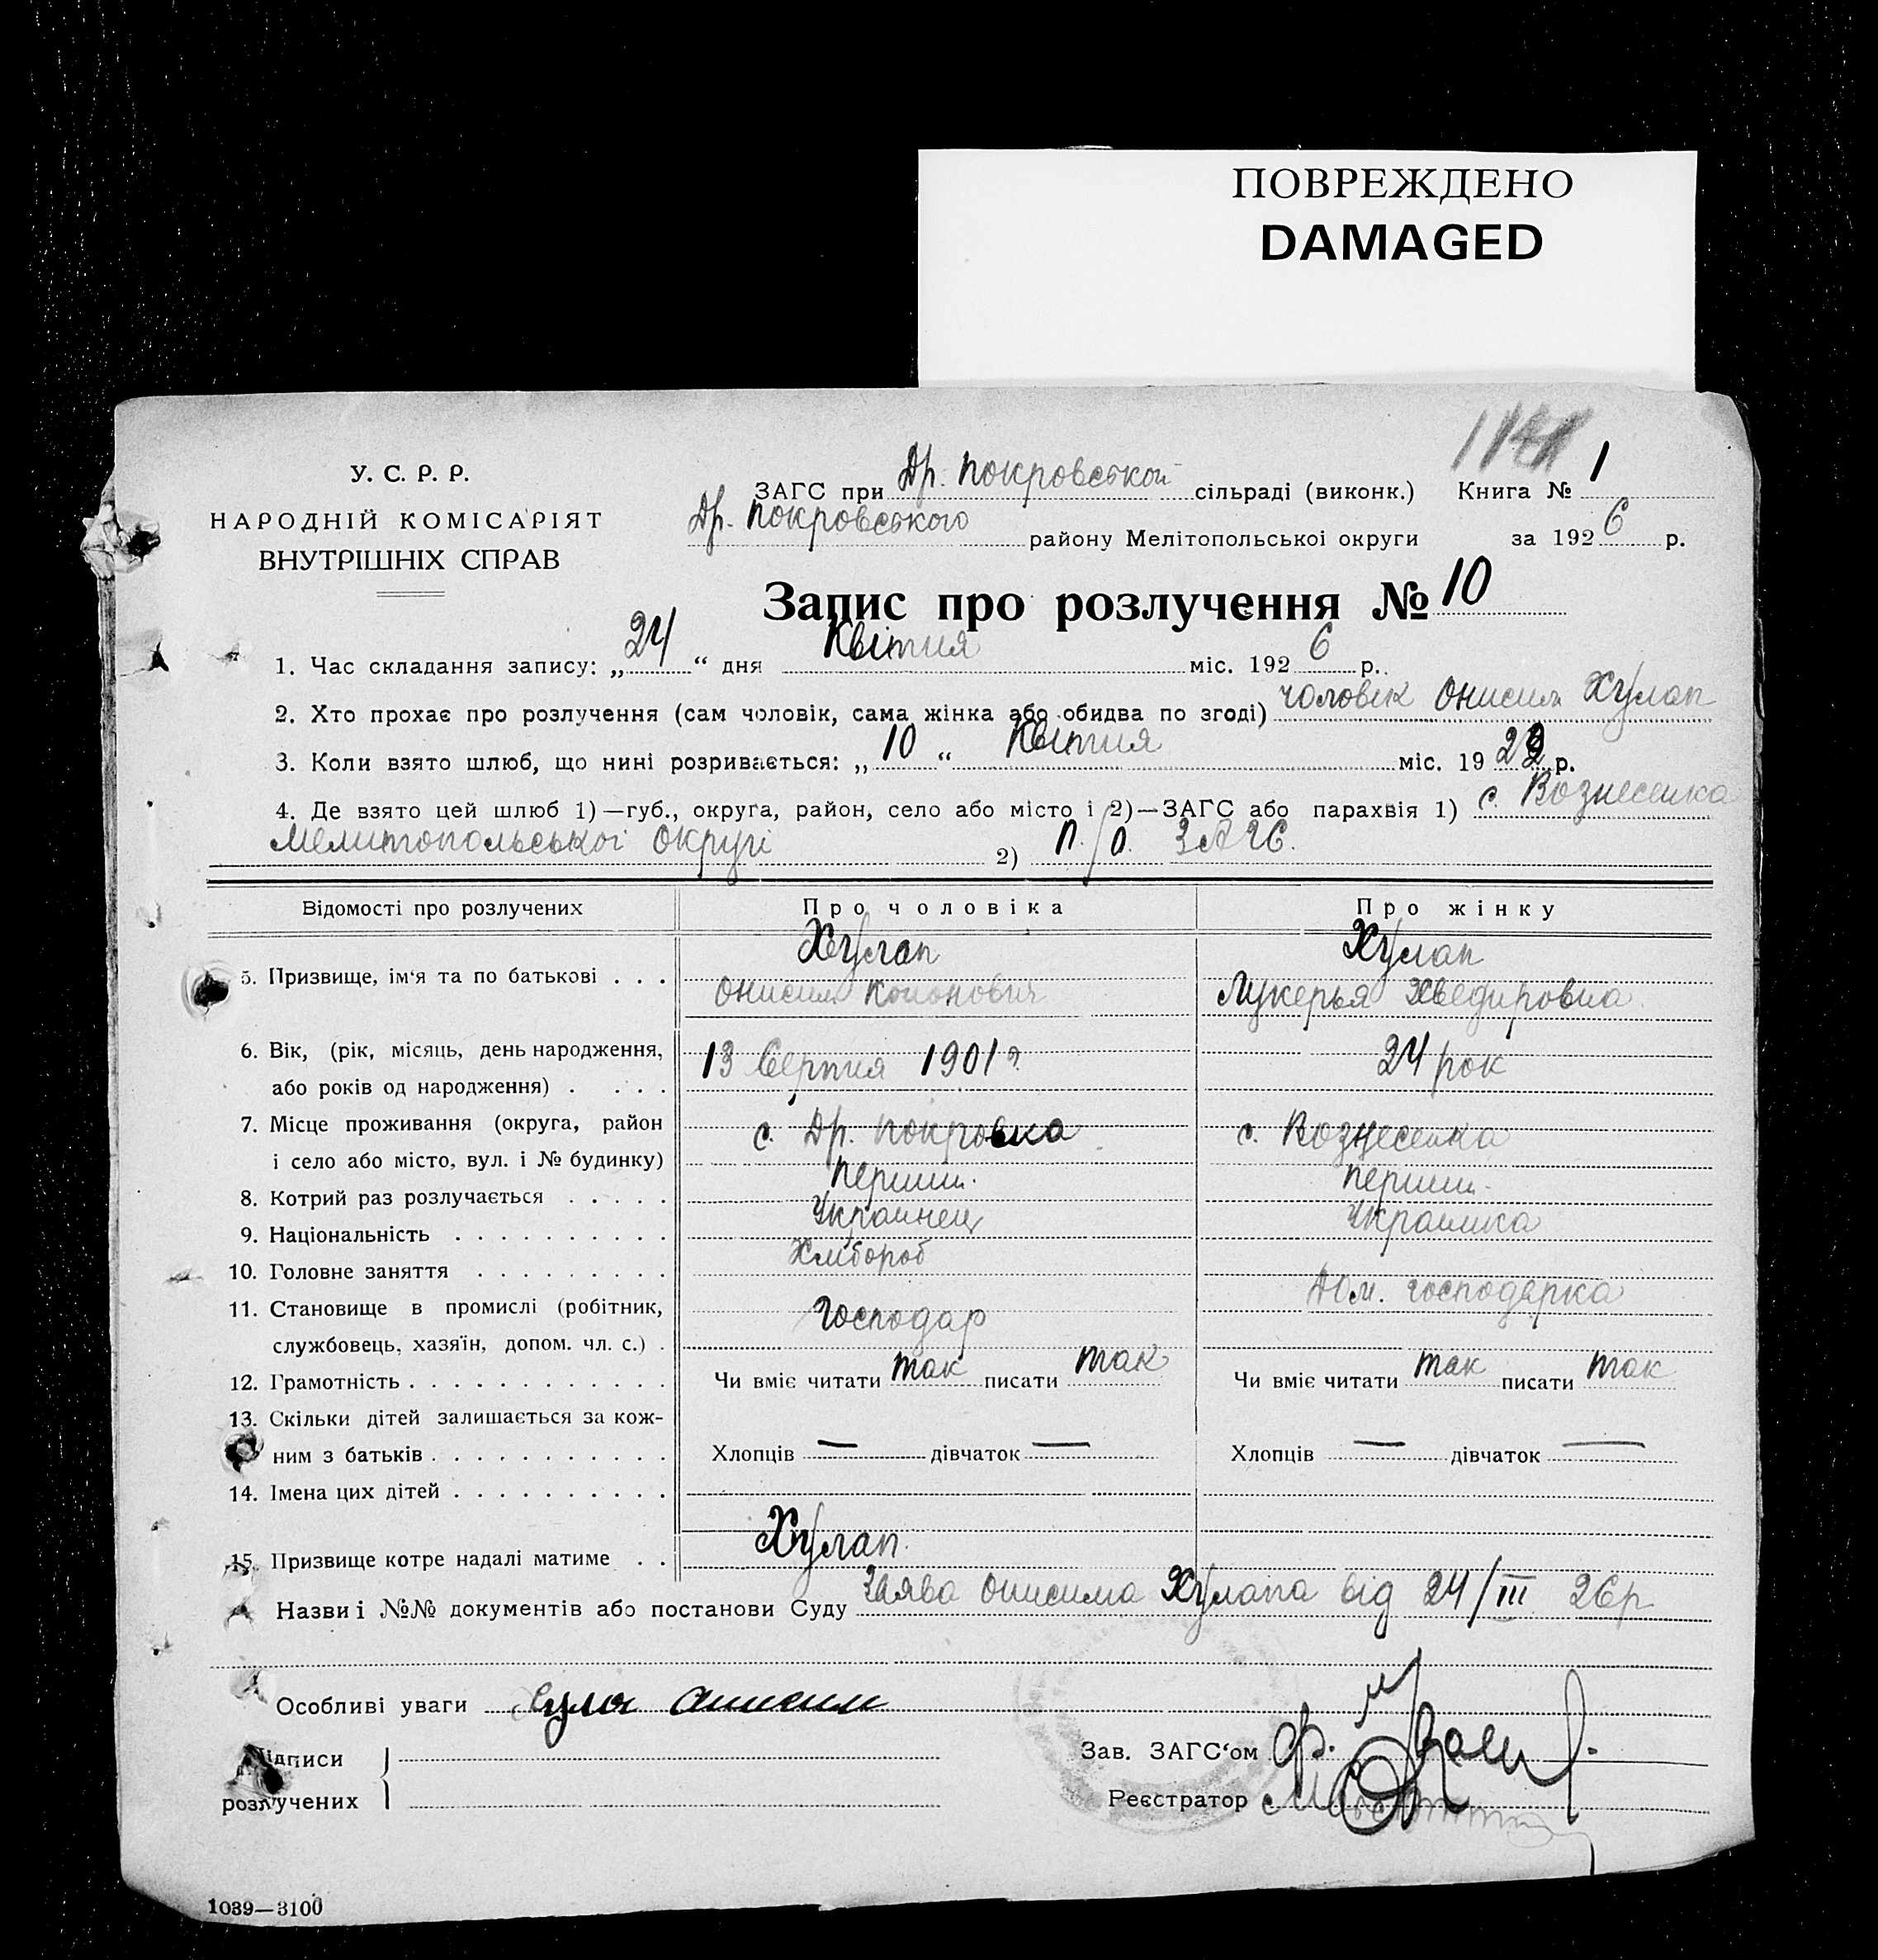 ПОВРЕЖДЕНО
DAMAGED
1
У. С. Р. Р.
НАРОДНІЙ КОМІСАРІЯТ
ВНУТРІШНІХ СПРАВ
ЗАГС при Др. Покровській сільраді (виконк.) Книга № 1
Др. Покровського району Мелітопольськоі округи за 1926 р.
Запис про розлучення № 10
1. Час складання запису: „24“ дня Квітня міс. 1926 р.
2. Хто прохає про розлучення (сам чоловік, сама жінка або обидва по згоді) чоловік Онисим Хулап
3. Коли взято шлюб, що нині розривається: „10“ Квітня міс. 19 р.
4. Де взято цей шлюб 1)—губ., округа, район, село або місто і 2)—ЗАГС або парахвія 1) с. Вознесенка
Мелитопольськоі округі 2) п/о. ЗАГС.
Відомості про розлучених Про чоловіка Про жінку
5. Призвище, ім'я та по батькові . . . Хулап Хулап
Онисим Кононович Лукерья Хведировна
6. Вік, (рік, місяць, день народження, 13 Серпня 1901 р. 24 рок
або років од народження) . . . .
7. Місце проживання (округа, район с. Др. Покровка с. Вознесенка
і село або місто, вул. і № будинку)
8. Котрий раз розлучається . . . . . перший. перший.
9. Національність . . . . . . . . . . Украинец Украинка
10. Головне заняття . . . . . . . . . Хлибороб
11. Становище в промислі (робітник, Господар Дом. господарка
службовець, хазяїн, допом. чл. с.) .
12. Грамотність . . . . . . . . . . . . Чи вміє читати так писати так Чи вміє читати так писати так
13. Скільки дітей залишається за кож-
ним з батьків . . . . . . . . . . . Хлопців — дівчаток — Хлопців — дівчаток —
14. Імена цих дітей . . . . . . . . . .
15. Призвище котре надалі матиме . . Хулап.
Назви і №№ документів або постанови Суду Заява Онисима Хулапа від 24/III 26р
Особливі уваги Онисим
Підписи
розлучених
Зав. ЗАГС'ом
Реєстратор
1039—3100